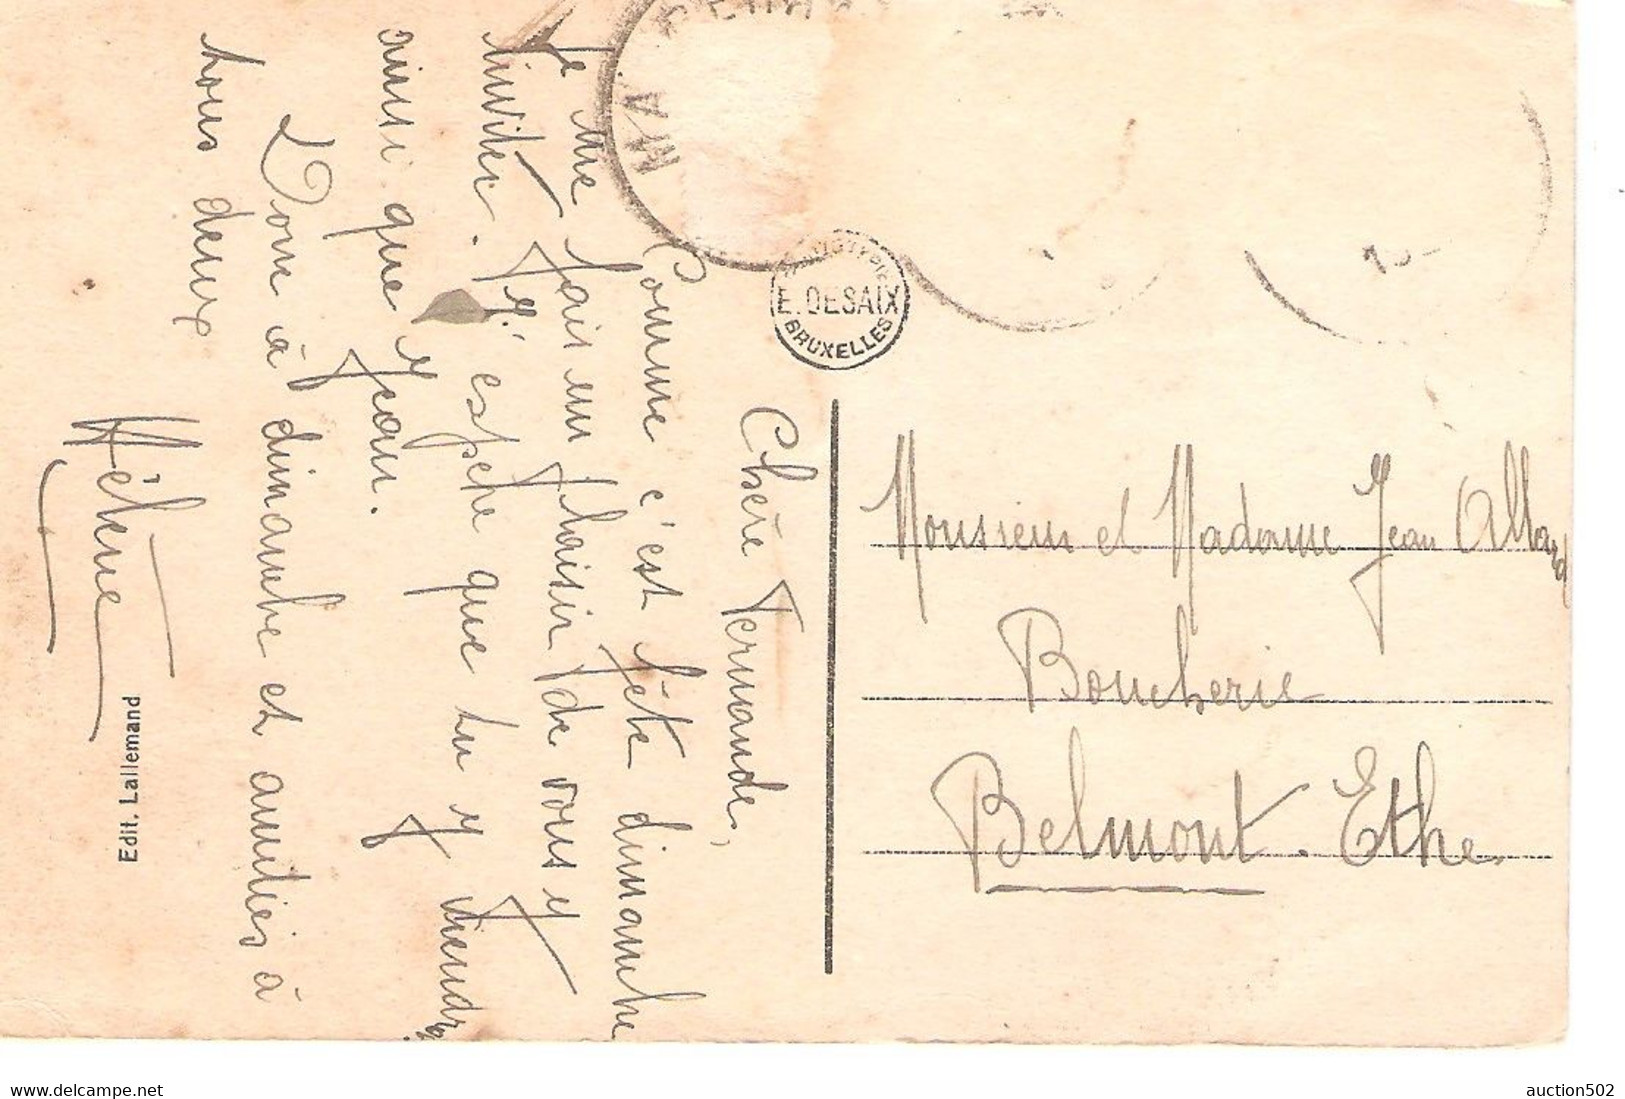 Chère Fernande,
Comme c'est fête dimanche
Je me fais un plaisir de vous y
inviter. J'espere que tu y viendra
ainsi que Jean.
Donc à dimanche et amitiés à
tous deux
Hélène
Edit. Lallemand
MA
E. DESAIX
BRUXELLES
Monsieur et Madame Jean Allard
Boucherie
Belmont. Ethe.
www.delcampe.net
auction502